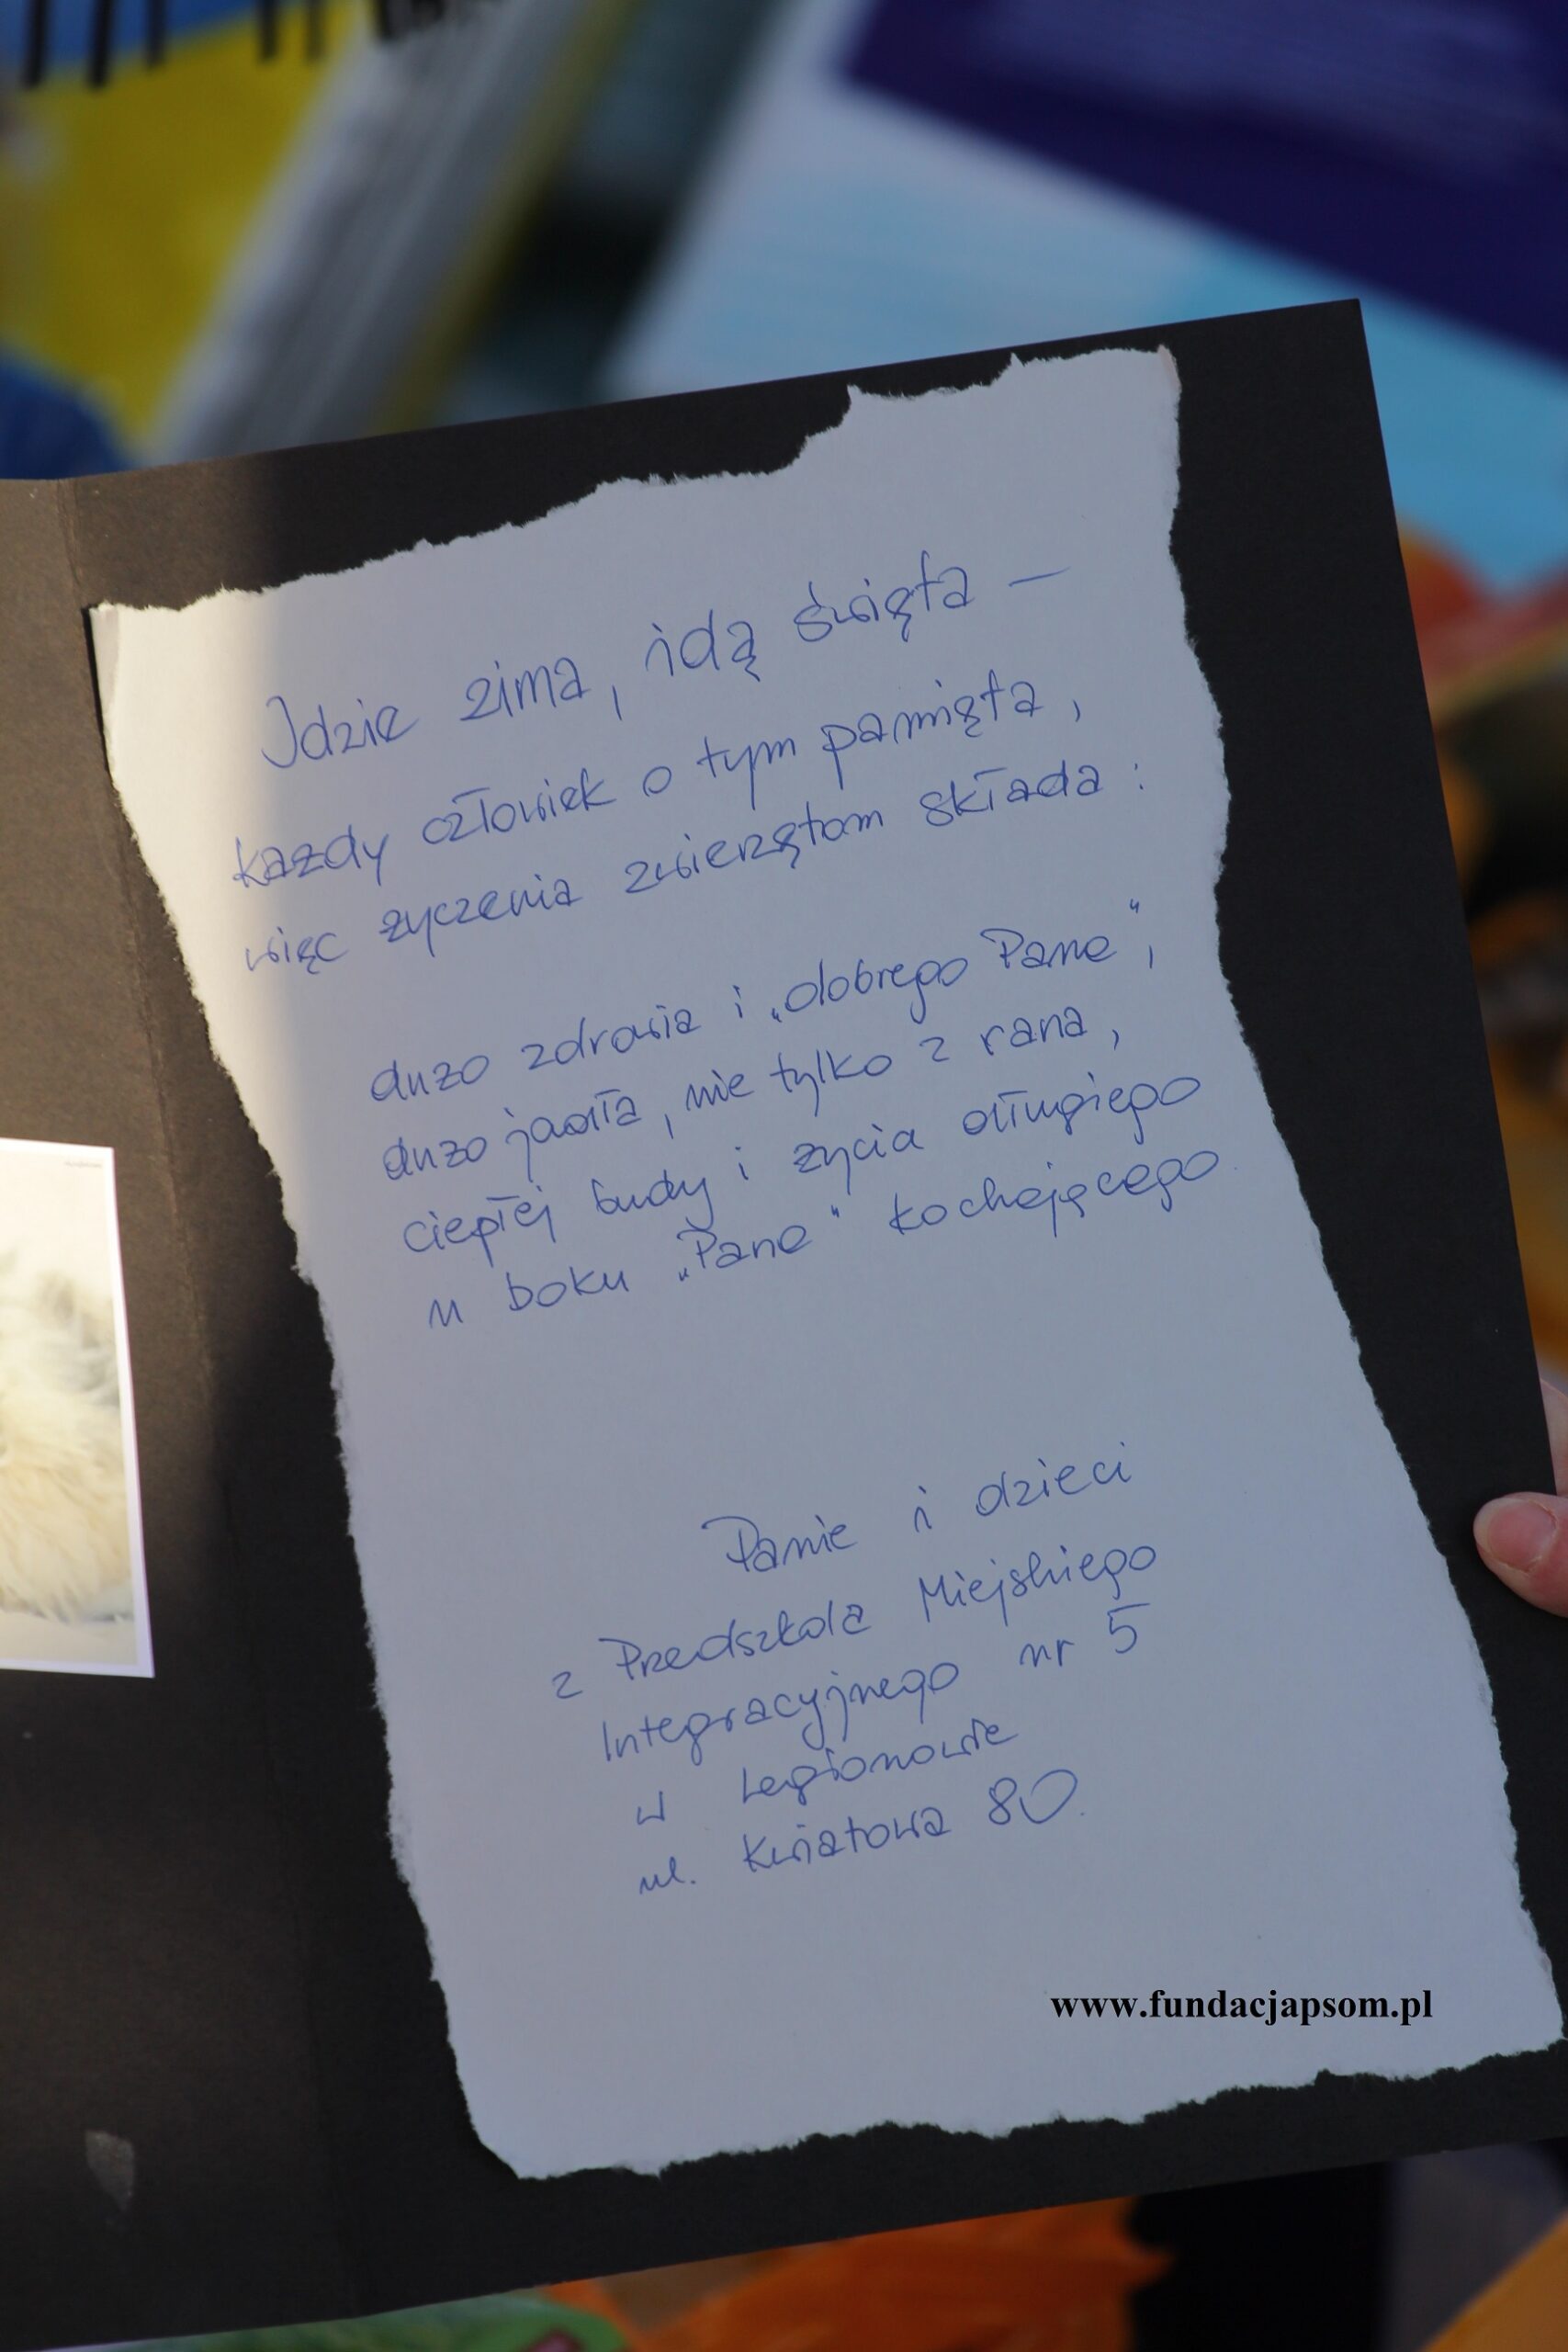 Idzie zima, idą święta –
każdy człowiek o tym pamięta,
więc życzenia zwierzętom składa:
dużo zdrowia i „dobrego Pana",
dużo jadła, nie tylko z rana,
ciepłej budy i życia długiego
u boku „Pana" kochającego.
Panie i dzieci
z Przedszkola Miejskiego
Integracyjnego nr 5
w Legionowie
ul. Kwiatowa 80.
www.fundacjapsom.pl